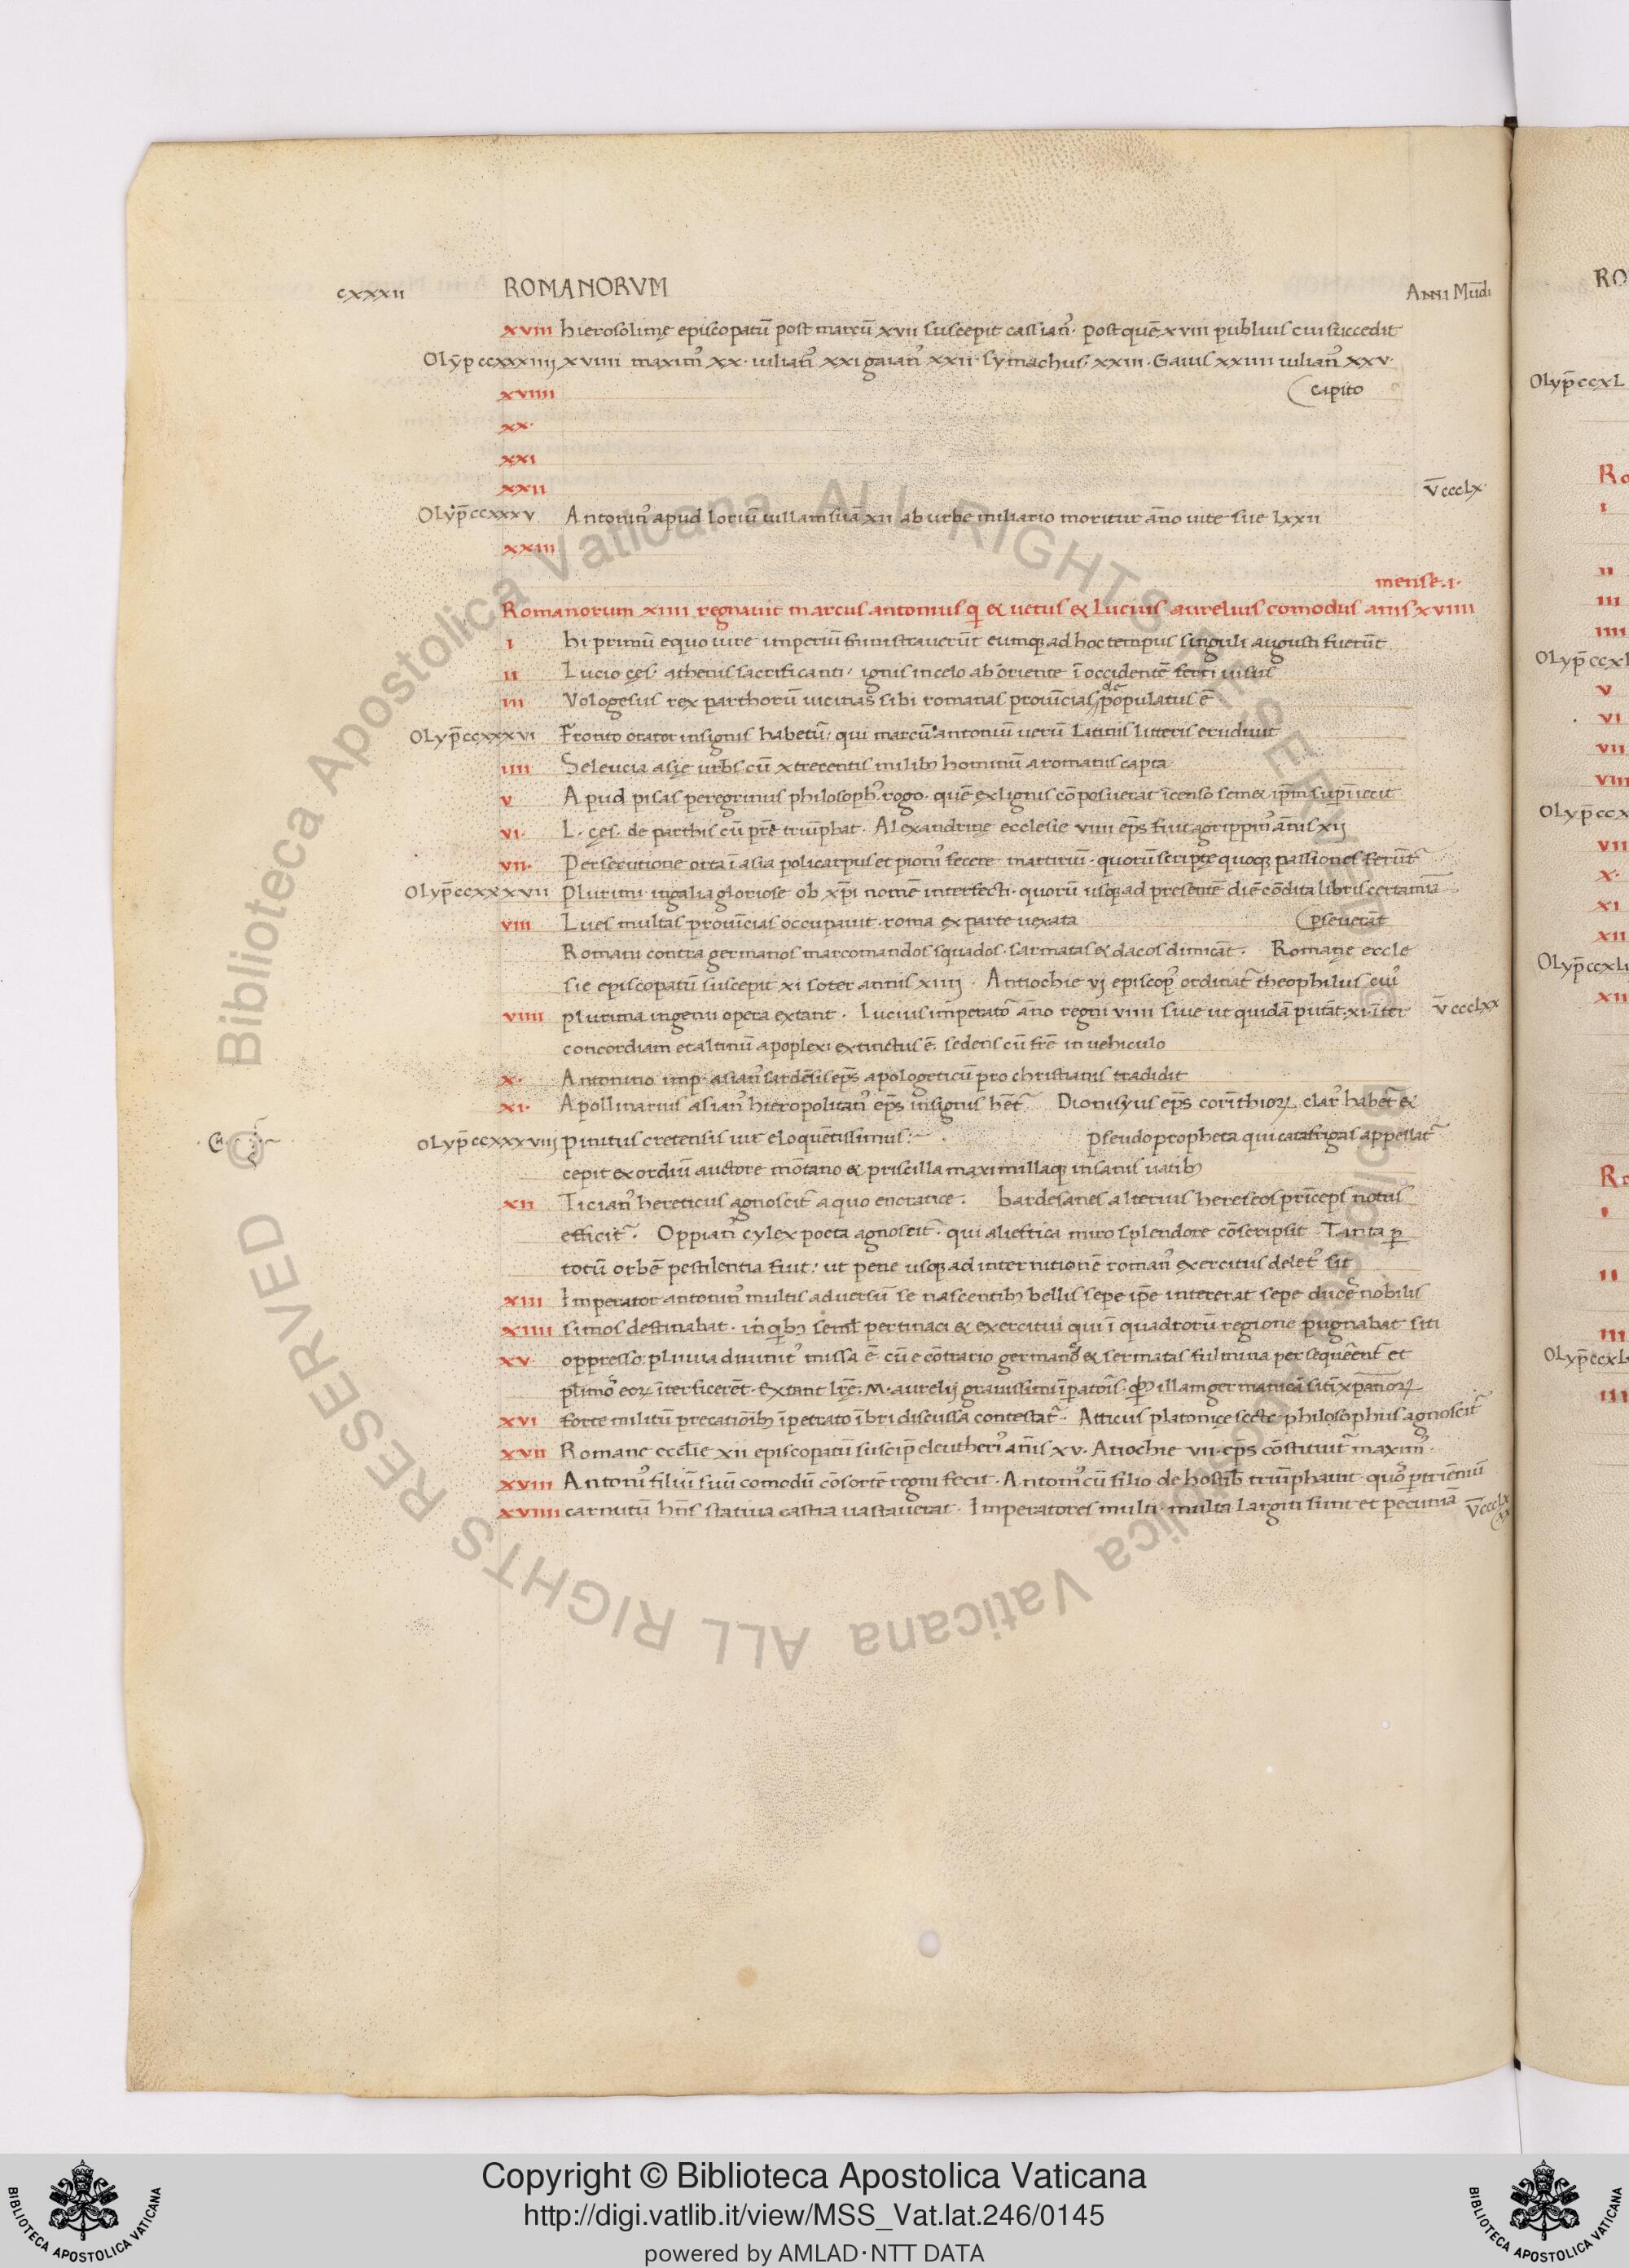 cxxxii ROMANORVM Anni Mūdi
xviii hierosolimę episcopatū post marcū xvii suscepit cassianꝰ. post quē xviii publius cui succedit
Olyp̄ ccxxxiiii xviiii maximꝰ xx. iulianꝰ xxi gaianꝰ xxii. symachus. xxiii. Gaius xxiiii iulianꝰ xxv.
xviiii capito
xx.
xxi
xxii v̄ccclx.
Olyp̄ ccxxxv Antoninꝰ apud loriū uillam suā xii ab urbe miliario moritur āno uite sue lxxii
xxiii
mense.i.
Romanorum xiiii regnauit marcus antonius q̄ & uerus & Lucius aurelius comodus anis xviiii
i hi primū equo iure imperiū
ad hoc tempus singuli augusti fuerūt
ii Lucio ces. athenis sacrificanti. ignis in celo ab oriente ī occidentē ferri uisus
iii Vologesus rex parthorū uicinas sibi romanas prouīcias depopulatus ē
Olyp̄ ccxxxvi Fronto orator insignis habetr̄. qui marcū antoniū uerū Latinis litteris erudiuit
iiii Seleucia asię urbs cū xtrecentis milibꝫ hominū a romanis capta
v Apud pisas peregrinus philosophꝰ. rogo. quē ex lignis cōposuerat īcenso semet ip̄m sup̄iecit
vi. L. ces. de parthis cū fr̄e triūphat. Alexandrine ecclesie viiii ep̄s fuit agrippinꝰ ānis xii
vii. Persecutione orta ī asia policarpus et pionꝰ fecere martiriū. quorū scripte quoqꝫ passiones ferūt
Olyp̄ ccxxxvii plurimi in galia gloriose ob xp̄i nomē interfecti. quorū usqꝫ ad presentē diē cōdita libris certamīa
viii Lues multas prouīcias occupauit. roma ex parte uexata pseuerāt
Romani contra germanos marcomandos squados. sarmatas & dacos dimicāt. Romanę eccle
sie episcopatū suscepit xi soter annis xiiii. Antiochie vi episcopꝰ ordinat̄ theophilus cuiꝰ
viiii plurima ingenii opera extant. Lucius imperator āno regni viiii siue ut quidā putāt. xi. īter v̄ccclxx
concordiam et altinū apoplexi extinctus ē. sedens cū fr̄e in uehiculo
x. Antonino imp. asianꝰ sardēsis ep̄s apologeticū pro christianis tradidit
xi. Apollinarius asianꝰ hieropolitanꝰ ep̄s insignis hēt̄ Dionisyus ep̄s corīthioꝝ clarꝰ habet̄ &
Olyp̄ ccxxxviii pinitus cretensis uir eloquētissimus. pseudo propheta qui catafrigas appellat̄
cepit exordiū auctore mōtano & priscilla maximillaqꝫ insanis uatibꝫ
xii Ticianꝰ hereticus agnoscit̄ a quo encratice. bardesanes alterius hereseos prīceps notus
efficit̄. Oppianꝰ cylex poeta agnoscit̄. qui alieftica miro splendore cōscripsit. Tanta ꝑ
totū orbē pestilentia fuit: ut pene usqꝫ ad internitionē romanꝰ exercitus deletꝰ sit
xiii Imperator antoninꝰ multis aduersū se nascentibꝫ bellis sepe ip̄e intererat sepe duces nobilis
xiiii simos destinabat. in qibꝫ seml̄ pertinaci & exercitui qui ī quadrorū regione pugnabat siti
xv. oppresso: pluuia diuinitꝰ missa ē. cū e cōtrario germanos & sermatas fulmina persequerent̄ et
plīmos eoꝝ īterficerēt. Extant lr̄e. M. aurelij grauissimi īperatoris. qibꝫ illam germanicā sitī xp̄anoꝝ
xvi forte militū precatiōibꝫ īpetrato ībri discussā contestat̄. Atticus platonicę secte philosophus agnoscit̄
xvii Romane ecclie xii episcopatū suscip̄ eleutherꝰ ānis xv. Atiochie vii. ep̄s cōstituit̄ maximꝰ.
xviii Antonꝰ filiū suū comodū cōsortē regni fecit. Antonꝰ cū filio de hostibꝫ triūphauit. quos ꝑ triēniū
xviiii carnutū hn̄s statiua castra uastauerat. Imperatores multi multa largiti sunt et pecuniā v̄ccclxxx
Copyright © Biblioteca Apostolica Vaticana
http://digi.vatlib.it/view/MSS_Vat.lat.246/0145
powered by AMLAD·NTT DATA